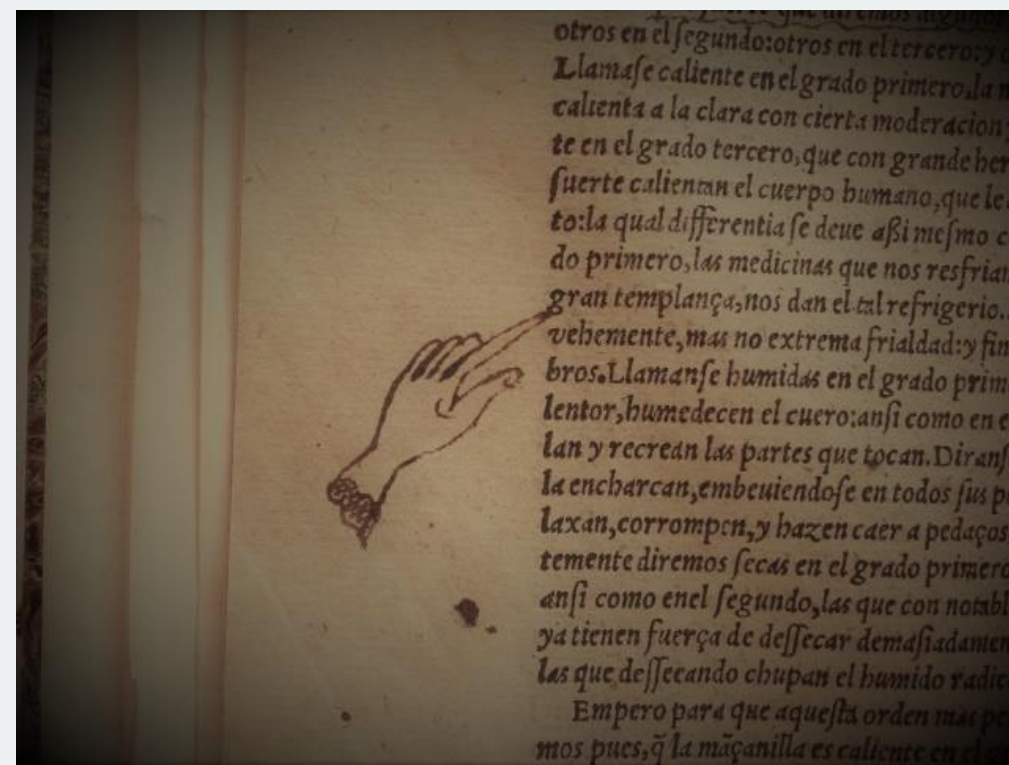 otros en el ſegundo:otros en el tercero:y
Llamaſe caliente en el grado primero,la
calienta a la clara con cierta moderacion
te en el grado tercero,que con grande her
ſuerte calientan el cuerpo humano,que le
to:la qual differentia ſe deue aßi meſmo c
do primero,las medicinas que nos resfrian
gran templança,nos dan el tal refrigerio.
vehemente,mas no extrema frialdad:y fin
bros.Llamanſe humidas en el grado prim
lentor,humedecen el cuero:anſi como en e
lan y recrean las partes que tocan.Diranſ
la encharcan,embeuiendoſe en todos ſus p
laxan,corrompen,y hazen caer a pedaços
temente diremos ſecas en el grado primero
anſi como enel ſegundo,las que con notabl
ya tienen fuerça de deſſecar demaſiadamen
las que deſſecando chupan el humido radic
Empero para que aqueſta orden mas pe
mos pues,q̃ la mãçanilla es caliente en el